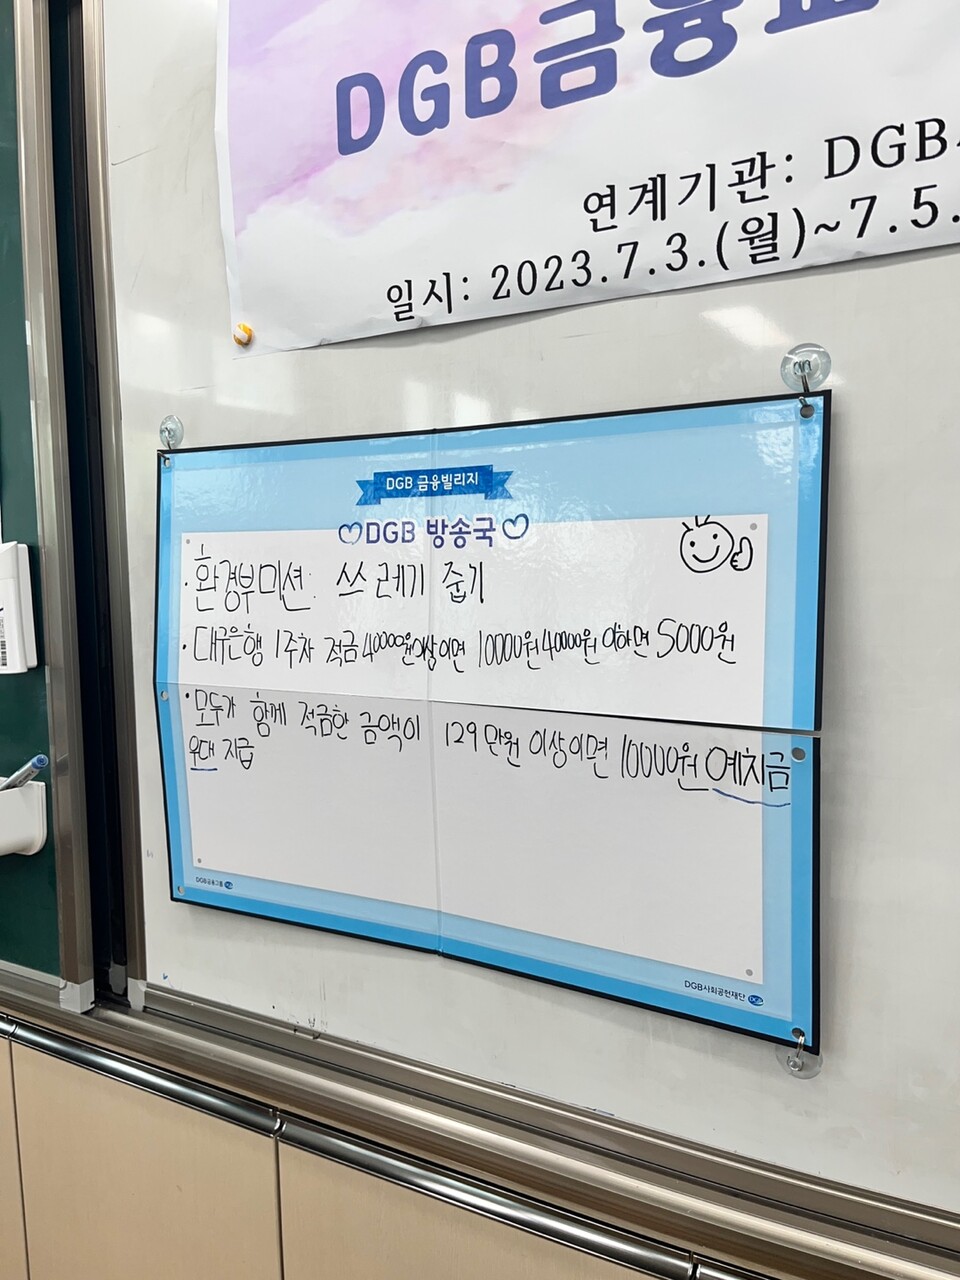 DGB금융교
연계기관: DGB
일시: 2023.7.3.(월)~7.5.
DGB 금융빌리지
DGB 방송국
· 환경부미션: 쓰레기 줍기
· 대구은행 1주차 적금 40000원이상이면 10000원 40000원 이하면 5000원
· 모두가 함께 적금한 금액이 129만원 이상이면 10000원 예치금
우대 지급
DGB금융그룹 DGB
DGB사회공헌재단 DGB